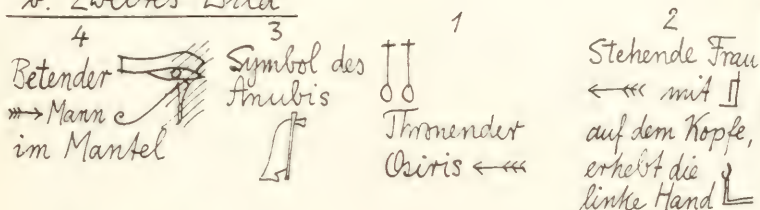 b. Zweites Bild
4
Betender
Mann
im Mantel
3
Symbol des
Anubis
1
Thronender
Osiris
2
Stehende Frau
mit
auf dem Kopfe,
erhebt die
linke Hand